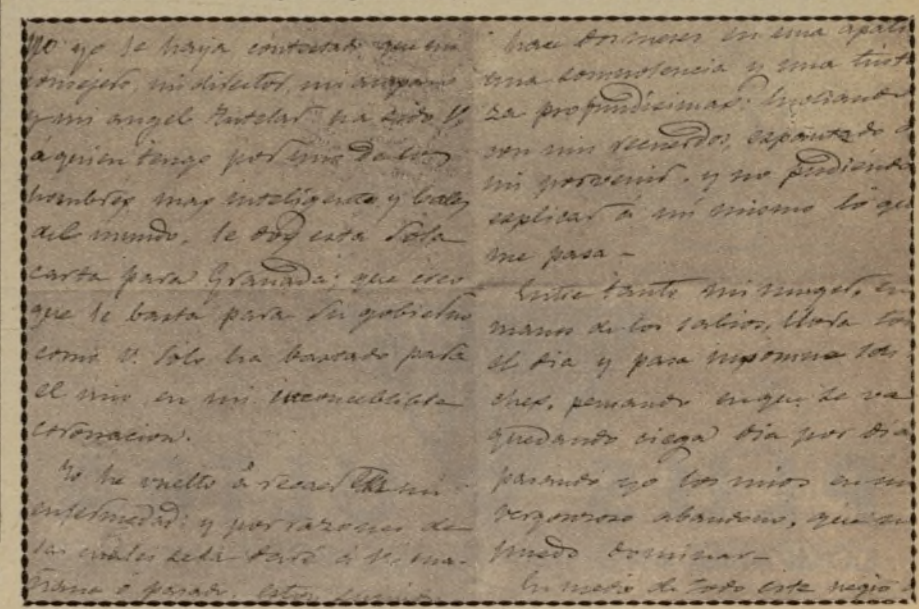 yo le haya contestado que mi
consejero, mi director, mi amparo
y mi angel tutelar ha sido V,
á quien tengo por uno de los
hombres mas inteligentes y leales
del mundo, le doy esta sola
carta para Granada; que creo
que le basta para su gobierno
como V. solo ha bastado para
el mio, en mi inconcebible
coronacion.
Yo he vuelto á recaer en mi
enfermedad: y por razones de
las cuales daré á V. ma-
ñana ó pasado, estoy sumido
hace dos meses en una apatia
una somnolencia y una triste
za profundísimas;
con mis recuerdos, espantado
mi porvenir, y no pudiendo
esplicar á mí mismo lo que
me pasa -
Entre tanto mi muger, en
manos de los sabios, llora todo
el dia y pasa insomne
ches, pensando en que se va
quedando ciega dia por dia
pasando yo los mios en un
vergonzoso abandono, que no
puedo dominar -
En medio de todo este negro